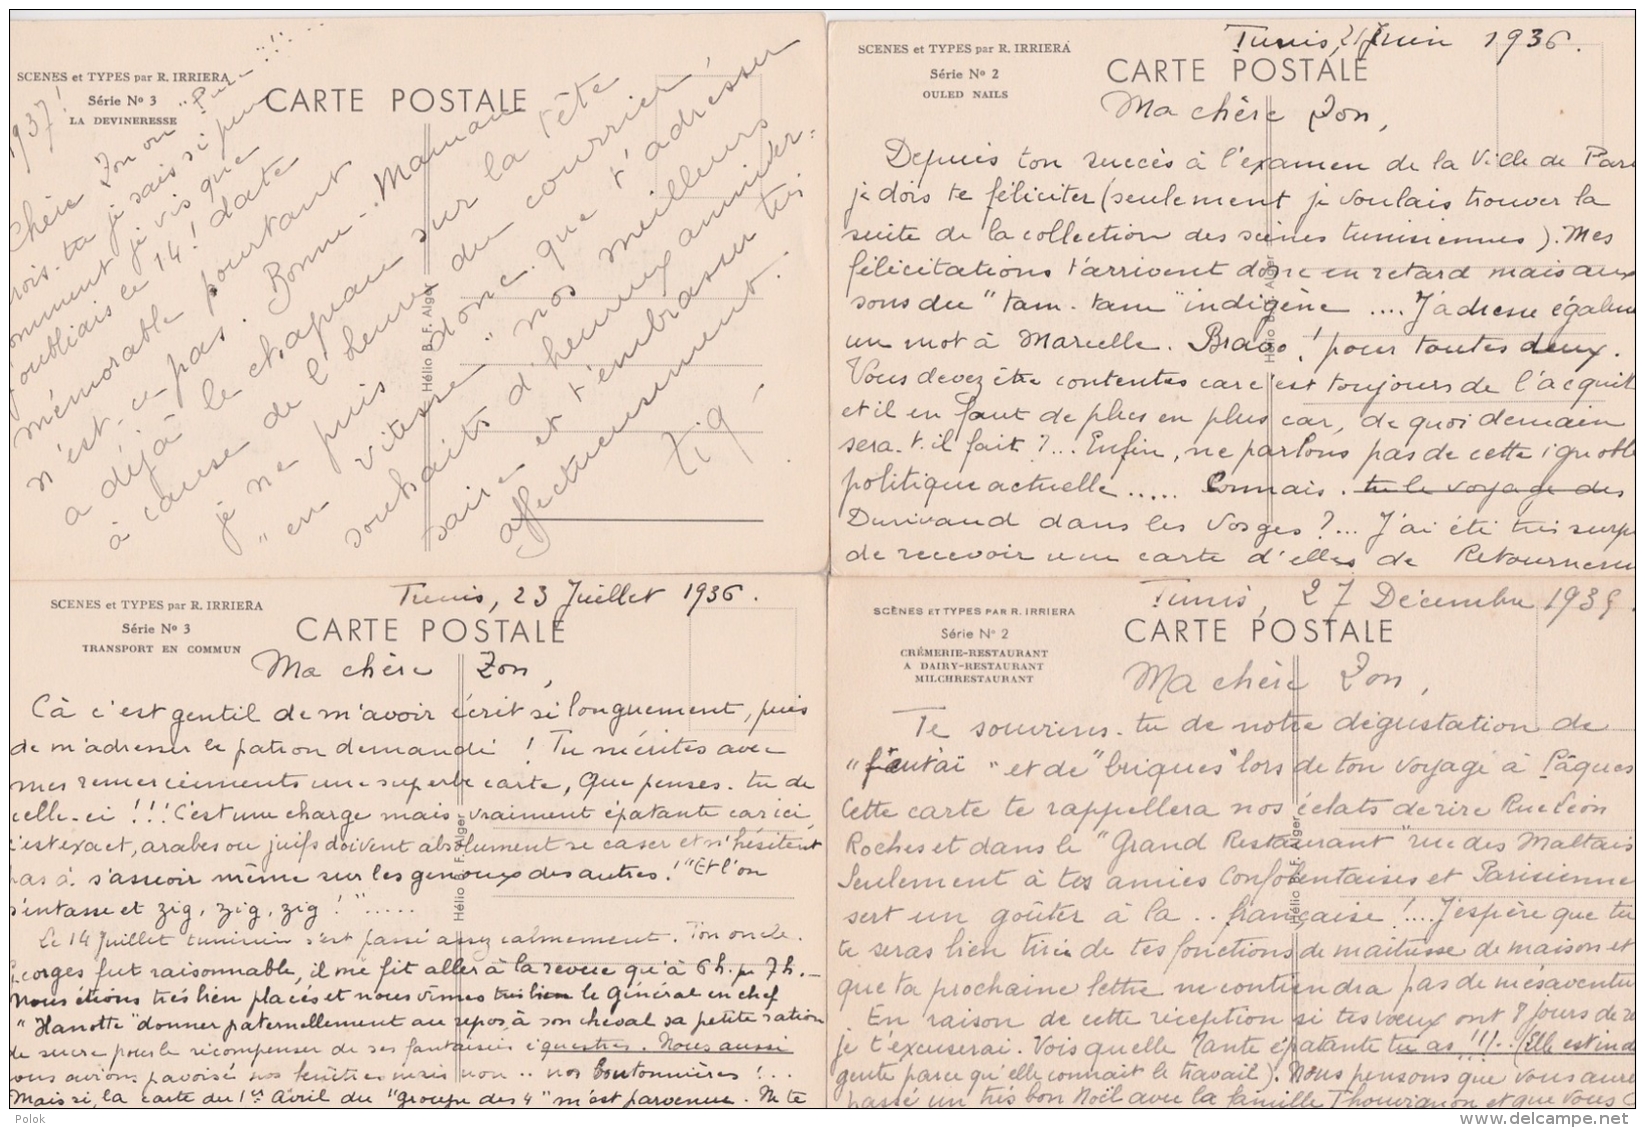 SCENES et TYPES par R. IRRIERA
Série No 3
LA DEVINERESSE
CARTE POSTALE
Hélio B. F. Alger
1937!
Chère Zon ou "Pure"...!!...
crois-tu je sais si peu
comment je vis que
j'oubliais le 14! date
mémorable pourtant
n'est-ce pas. Bonne-Maman
a déjà le chapeau sur la tête
à cause de l'heure du courrier!
je ne puis donc que t'adresser
"en vitesse" nos meilleurs
souhaits d'heureux anniver-
saire et t'embrasser très
affectueusement.
Zig
SCENES et TYPES par R. IRRIERA
Série No 2
OULED NAILS
CARTE POSTALE
Hélio B. F. Alger
Tunis, 21 Juin 1936.
Ma chère Zon,
Depuis ton succès à l'examen de la Ville de Pari
je dois te féliciter (seulement je voulais trouver la
suite de la collection des scènes tunisiennes). Mes
félicitations t'arrivent donc en retard mais aux
sons du "tam-tam" indigène .... J'adresse égaleme
un mot à Marcelle. Bravo! pour toutes deux.
Vous devez être contentes car c'est toujours de l'acquit
et il en faut de plus en plus car, de quoi demain
sera-t-il fait?... Enfin, ne parlons pas de cette ignoble
politique actuelle ..... Connais-tu le voyage des
Durivaud dans les Vosges?... J'ai été très surp
de recevoir une carte d'elles de Retournem
SCENES et TYPES par R. IRRIERA
Série No 3
TRANSPORT EN COMMUN
CARTE POSTALE
Hélio B. F. Alger
Tunis, 23 Juillet 1936.
Ma chère Zon,
Cà c'est gentil de m'avoir écrit si longuement, puis
de m'adresser le patron demandé! Tu mérites avec
mes remerciements une superbe carte, Que penses-tu de
celle-ci!!! C'est une charge mais vraiment épatante car ici,
c'est exact, arabes ou juifs doivent absolument se caser et n'hésitent
pas à s'asseoir même sur les genoux des autres! "Et l'on
s'entasse et zig, zig, zig!".....
Le 14 Juillet tunisien s'est passé assez calmement. Ton oncle
Georges fut raisonnable, il me fit aller à la revue qu'à 6h. pr 7h.-
Nous étions très bien placés et nous vîmes très bien le Général en chef
"Hanotte" donner paternellement au repos, à son cheval sa petite ration
de sucre pour le récompenser de ses fantaisies équestres. Nous aussi
nous avions pavoisé nos fenêtres mais non .. nos boutonnières!...
Mais si, la carte du 1er Avril du "groupe des 4" m'est parvenue. Ne te
SCÈNES ET TYPES PAR R. IRRIERA
Série No 2
CRÉMERIE-RESTAURANT
A DAIRY-RESTAURANT
MILCHRESTAURANT
CARTE POSTALE
Hélio B. F. Alger
Tunis, 27 Décembre 1935.
Ma chère Zon,
Te souviens-tu de notre dégustation de
"fantaï" et de "briques" lors de ton voyage à Pâques
Cette carte te rappellera nos éclats de rire Rue Léon
Roches et dans le "Grand Restaurant" rue des Maltais
Seulement à tes amies Confolentaises et Parisienne
sert un goûter à la .. française!.... J'espère que tu
te seras bien tirée de tes fonctions de maîtresse de maison et
que ta prochaine lettre ne contiendra pas de mésaventu
En raison de cette réception si tes vœux ont 8 jours de re
je t'excuserai. Vois quelle Tante épatante tu as!!!.. (Elle est ind
gente parce qu'elle connait le travail). Nous pensons que vous aure
passé un très bon Noël avec la famille Thouvignon et que vous
Polok
www.delcampe.net